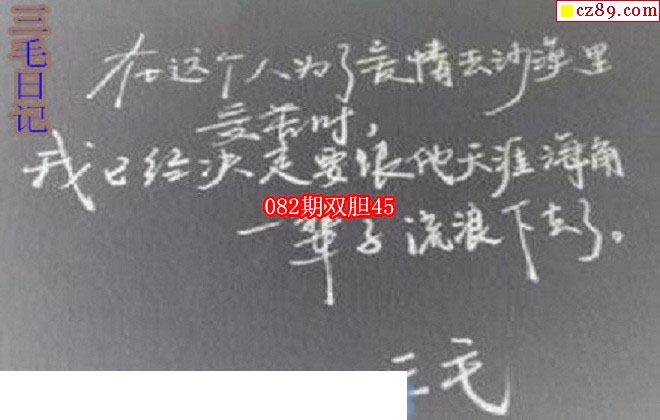 三毛日记
cz89.com
在这个人为了爱情去沙漠里
受苦时，
我已经决定要跟他天涯海角
082期双胆45
一辈子流浪下去了。
三毛